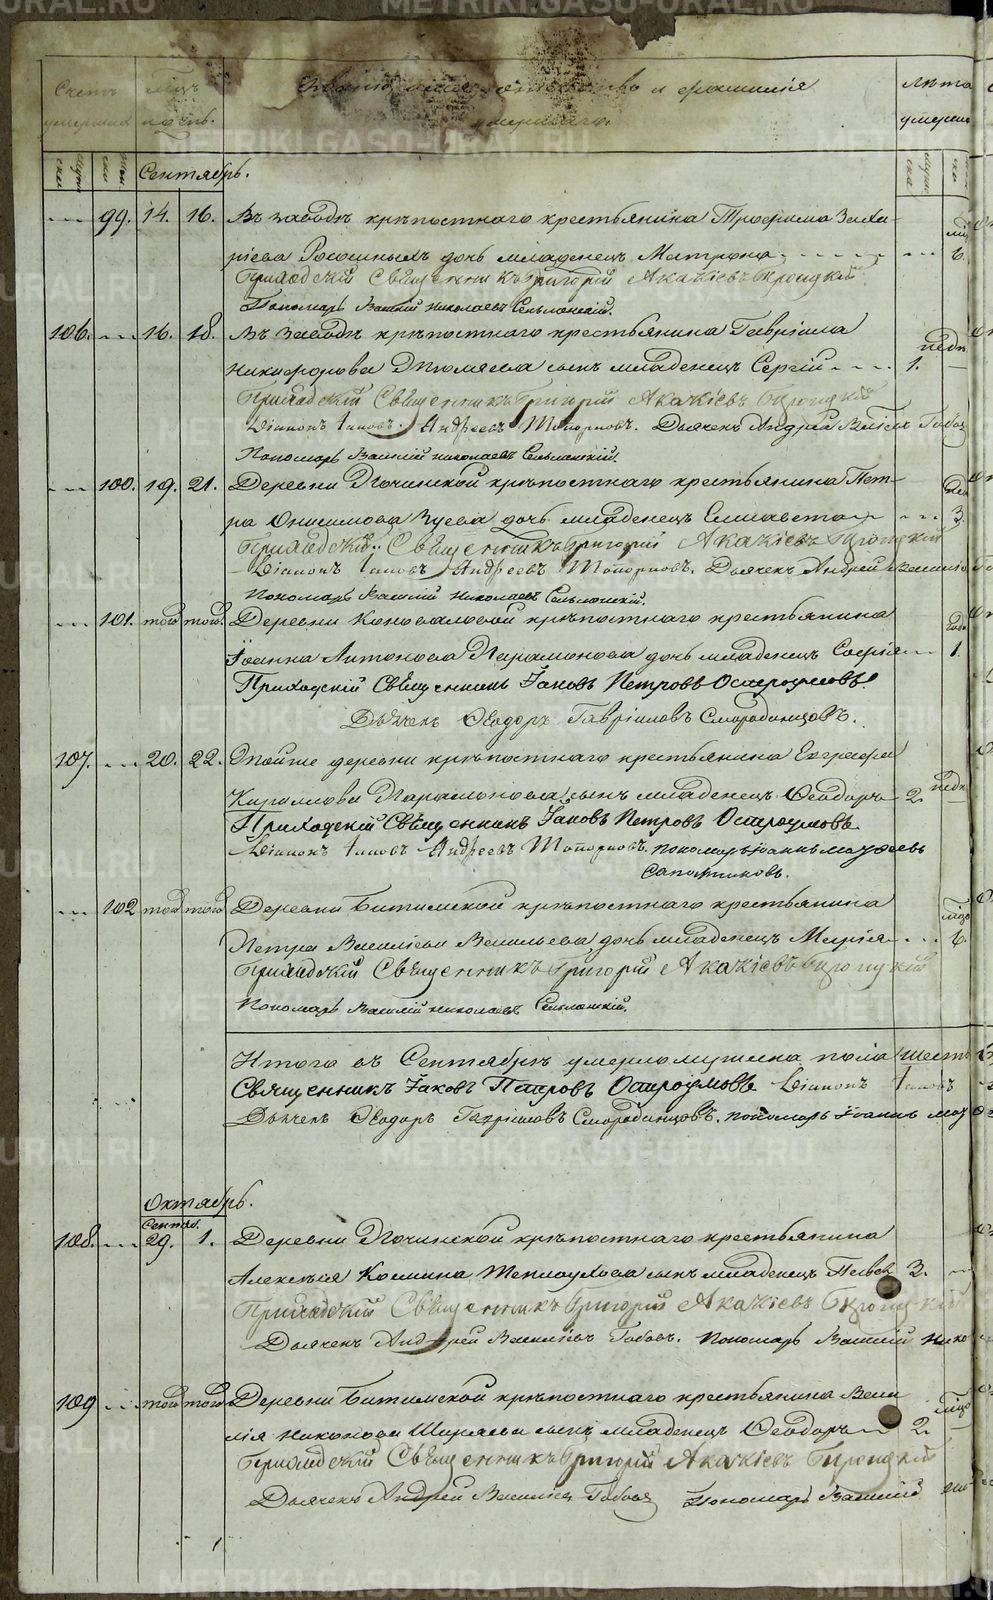 METRIKI.GASO-URAL.RU
Счетъ умершихъ
Мѣсяцъ и день.
Званіе, имя, отчество и фамилія
умершаго.
Лѣта
умерша
Сентябрь.
99. 14. 16. Въ заводѣ крѣпостнаго крестьянина Трофима Заха-
ріева дочь младенецъ Матрона
Приходскій Священникъ Григорій Акакіевъ Троицкій
Пономарь Василій Николаевъ Сельменскій.
106. 16. 18. Въ Заводѣ крѣпостнаго крестьянина Гавріила
недѣ
Никифорова сынъ младенецъ Сергій 1.
Приходскій Священникъ Григорій Акакіевъ Троицкій
Діаконъ Іаковъ Андреевъ Топорковъ. Дьячекъ Андрей
Пономарь Василій Николаевъ Сельменскій.
100. 19. 21. Деревни Починской крѣпостнаго крестьянина Пет-
ра Онисимова Зуева дочь младенецъ Елисавета 3.
Приходскій Священникъ Григорій Акакіевъ Троицкій
Діаконъ Іаковъ Андреевъ Топорковъ. Дьячекъ Андрей Василіе
Пономарь Василій Николаевъ Сельменскій.
101. того того. Деревни Коноваловой крѣпостнаго крестьянина
Іоанна Антонова Парамонова дочь младенецъ Софія 1.
Приходскій Священникъ Іаковъ Петровъ Остроумовъ.
Дьячекъ Ѳеодоръ Гавріиловъ Смородинцовъ.
107. 20. 22. Тойже деревни крѣпостнаго крестьянина Евграфа
недѣ
Кириллова Парамонова сынъ младенецъ Ѳеодоръ 2.
Приходскій Священникъ Іаковъ Петровъ Остроумовъ.
Діаконъ Іаковъ Андреевъ Топорковъ. пономарь Іоаннъ
Сапожниковъ.
102 того того Деревни Битимской крѣпостнаго крестьянина
Петра Василіева Васильева дочь младенецъ Марія
Приходскій Священникъ Григорій Акакіевъ Троицкій
Пономарь Василій Николаевъ Сельменскій.
Итого въ Сентябрѣ умерло мужеска пола шесть
Священникъ Іаковъ Петровъ Остроумовъ Діаконъ Іаковъ
Дьячекъ Ѳеодоръ Гавріиловъ Смородинцовъ. пономарь Іоаннъ
Октябрь.
Сентяб.
108. 29. 1. Деревни Починской крѣпостнаго крестьянина
Алексѣя Космина Теплоухова сынъ младенецъ Павелъ 3.
Приходскій Священникъ Григорій Акакіевъ Троицкій
Дьячекъ Андрей Василіевъ Пономарь Василій Нико
109 того того Деревни Битимской крѣпостнаго крестьянина Васи
лія Никонова Ширяева сынъ младенецъ Ѳеодоръ 2.
Приходскій Священникъ Григорій Акакіевъ Троицкій
Дьячекъ Андрей Василіев Пономарь Василій
METRIKI.GASO-URAL.RU